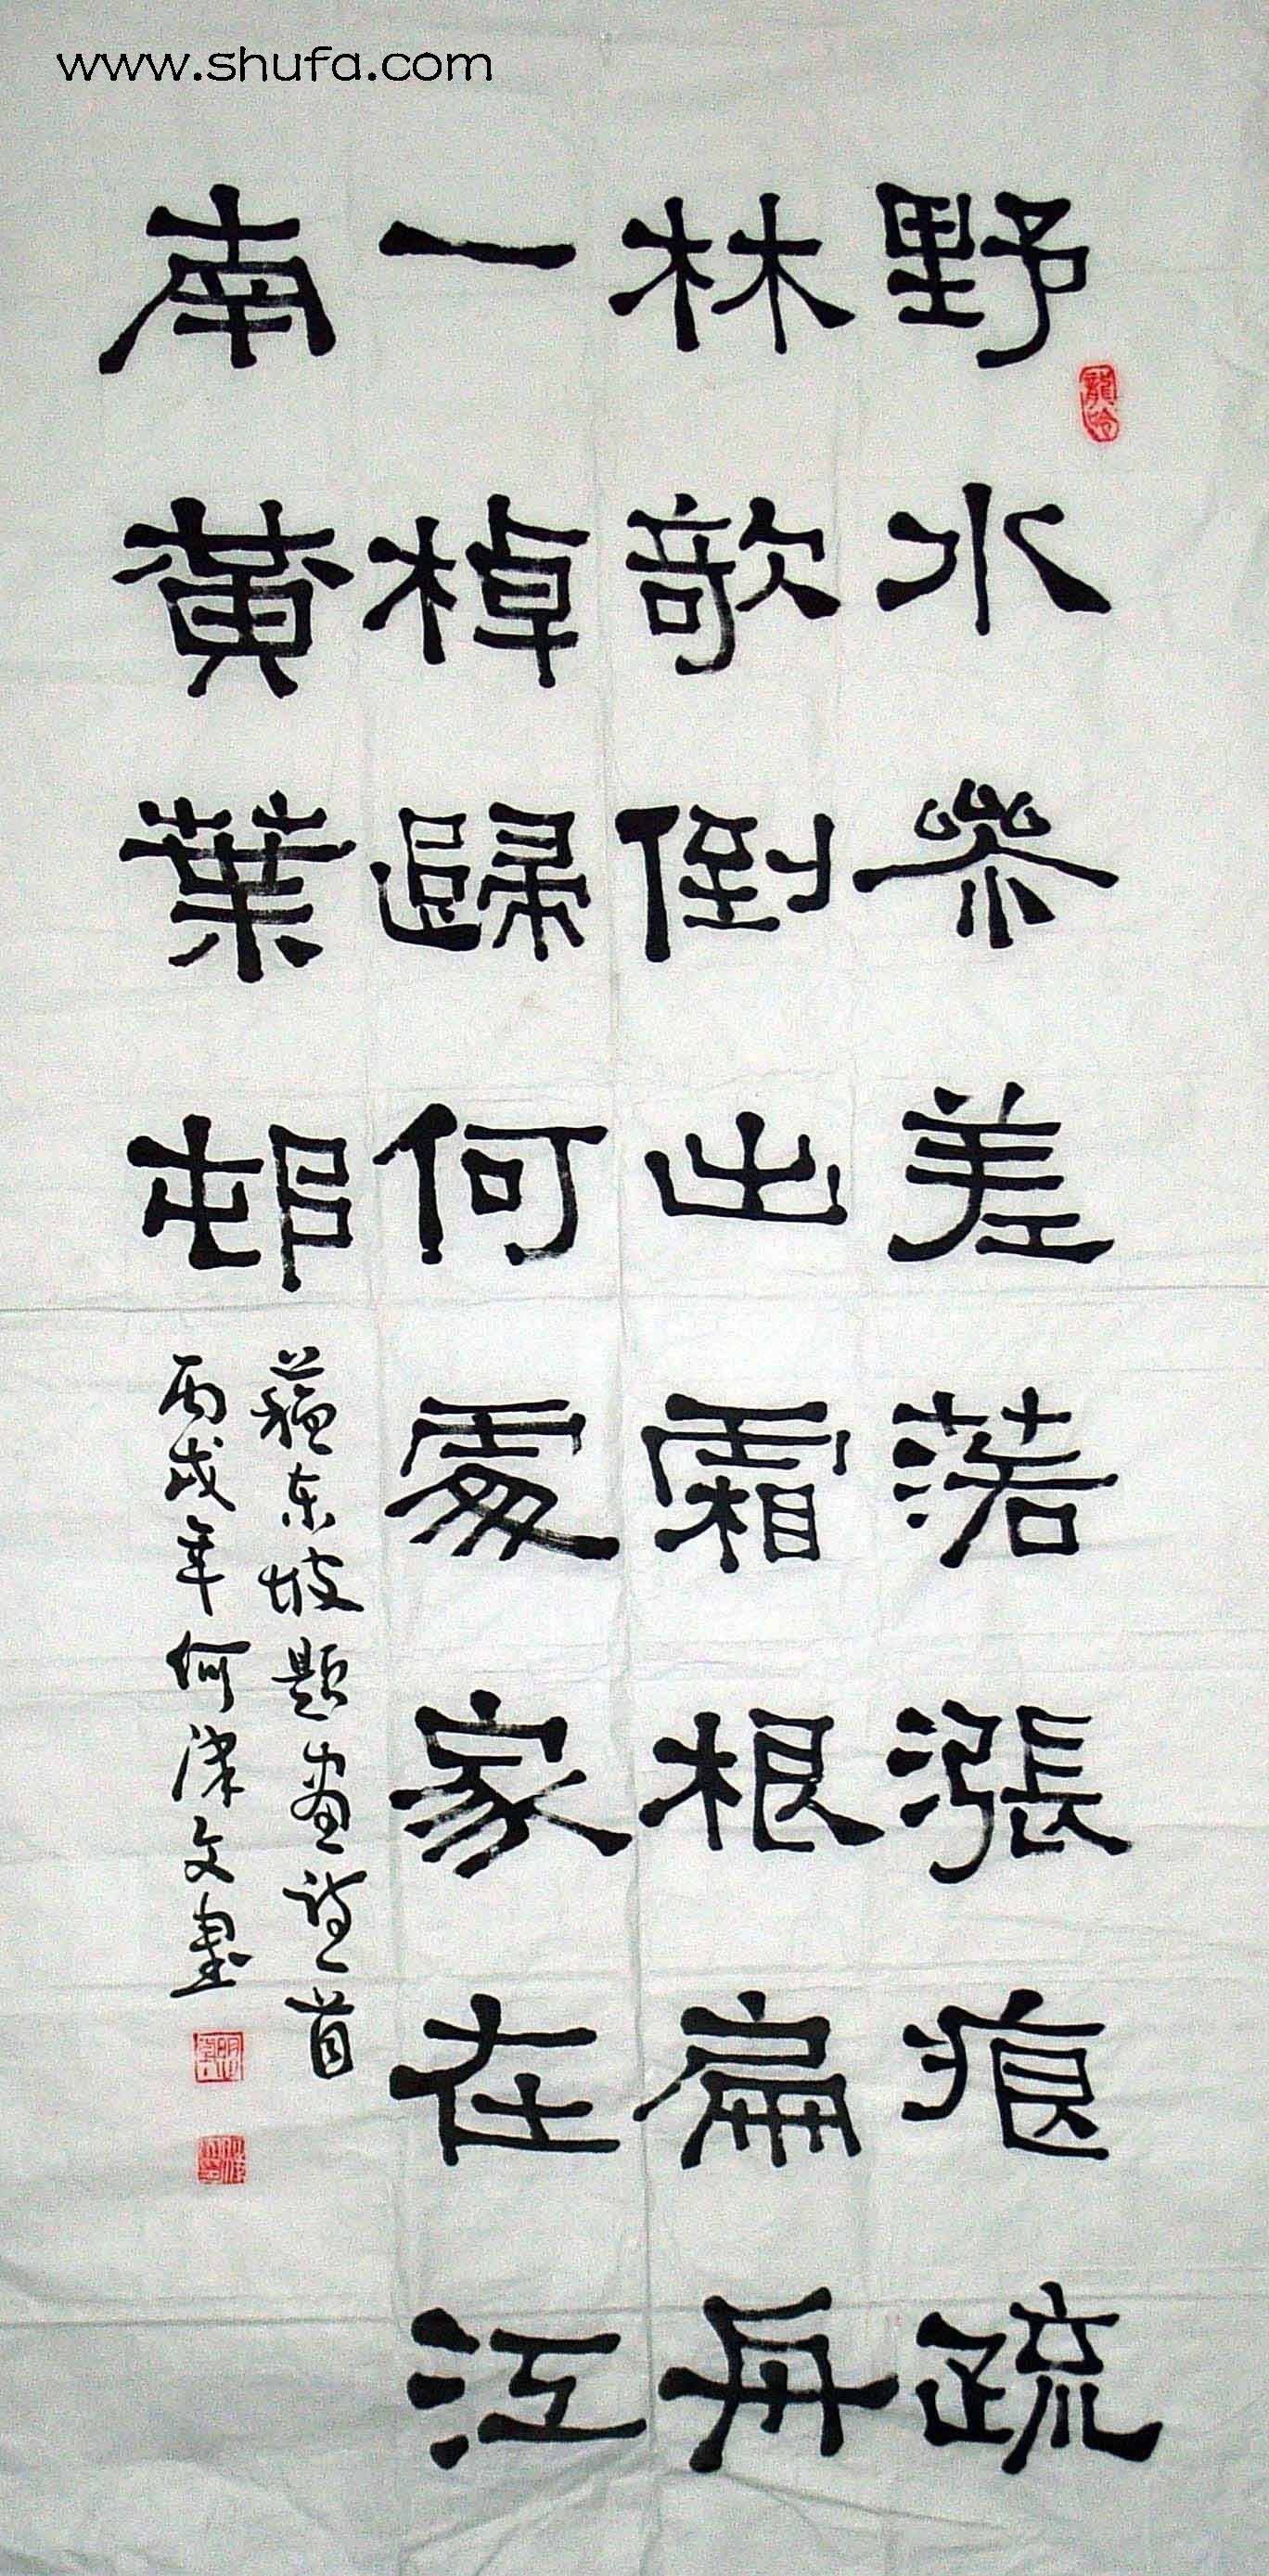 www.shufa.com
野水参差落漲痕疏
林欹倒出霜根扁舟
一棹歸何處家在江
南黄葉邨
蘇东坡題画詩一首
丙戌年何津文書
龍吟